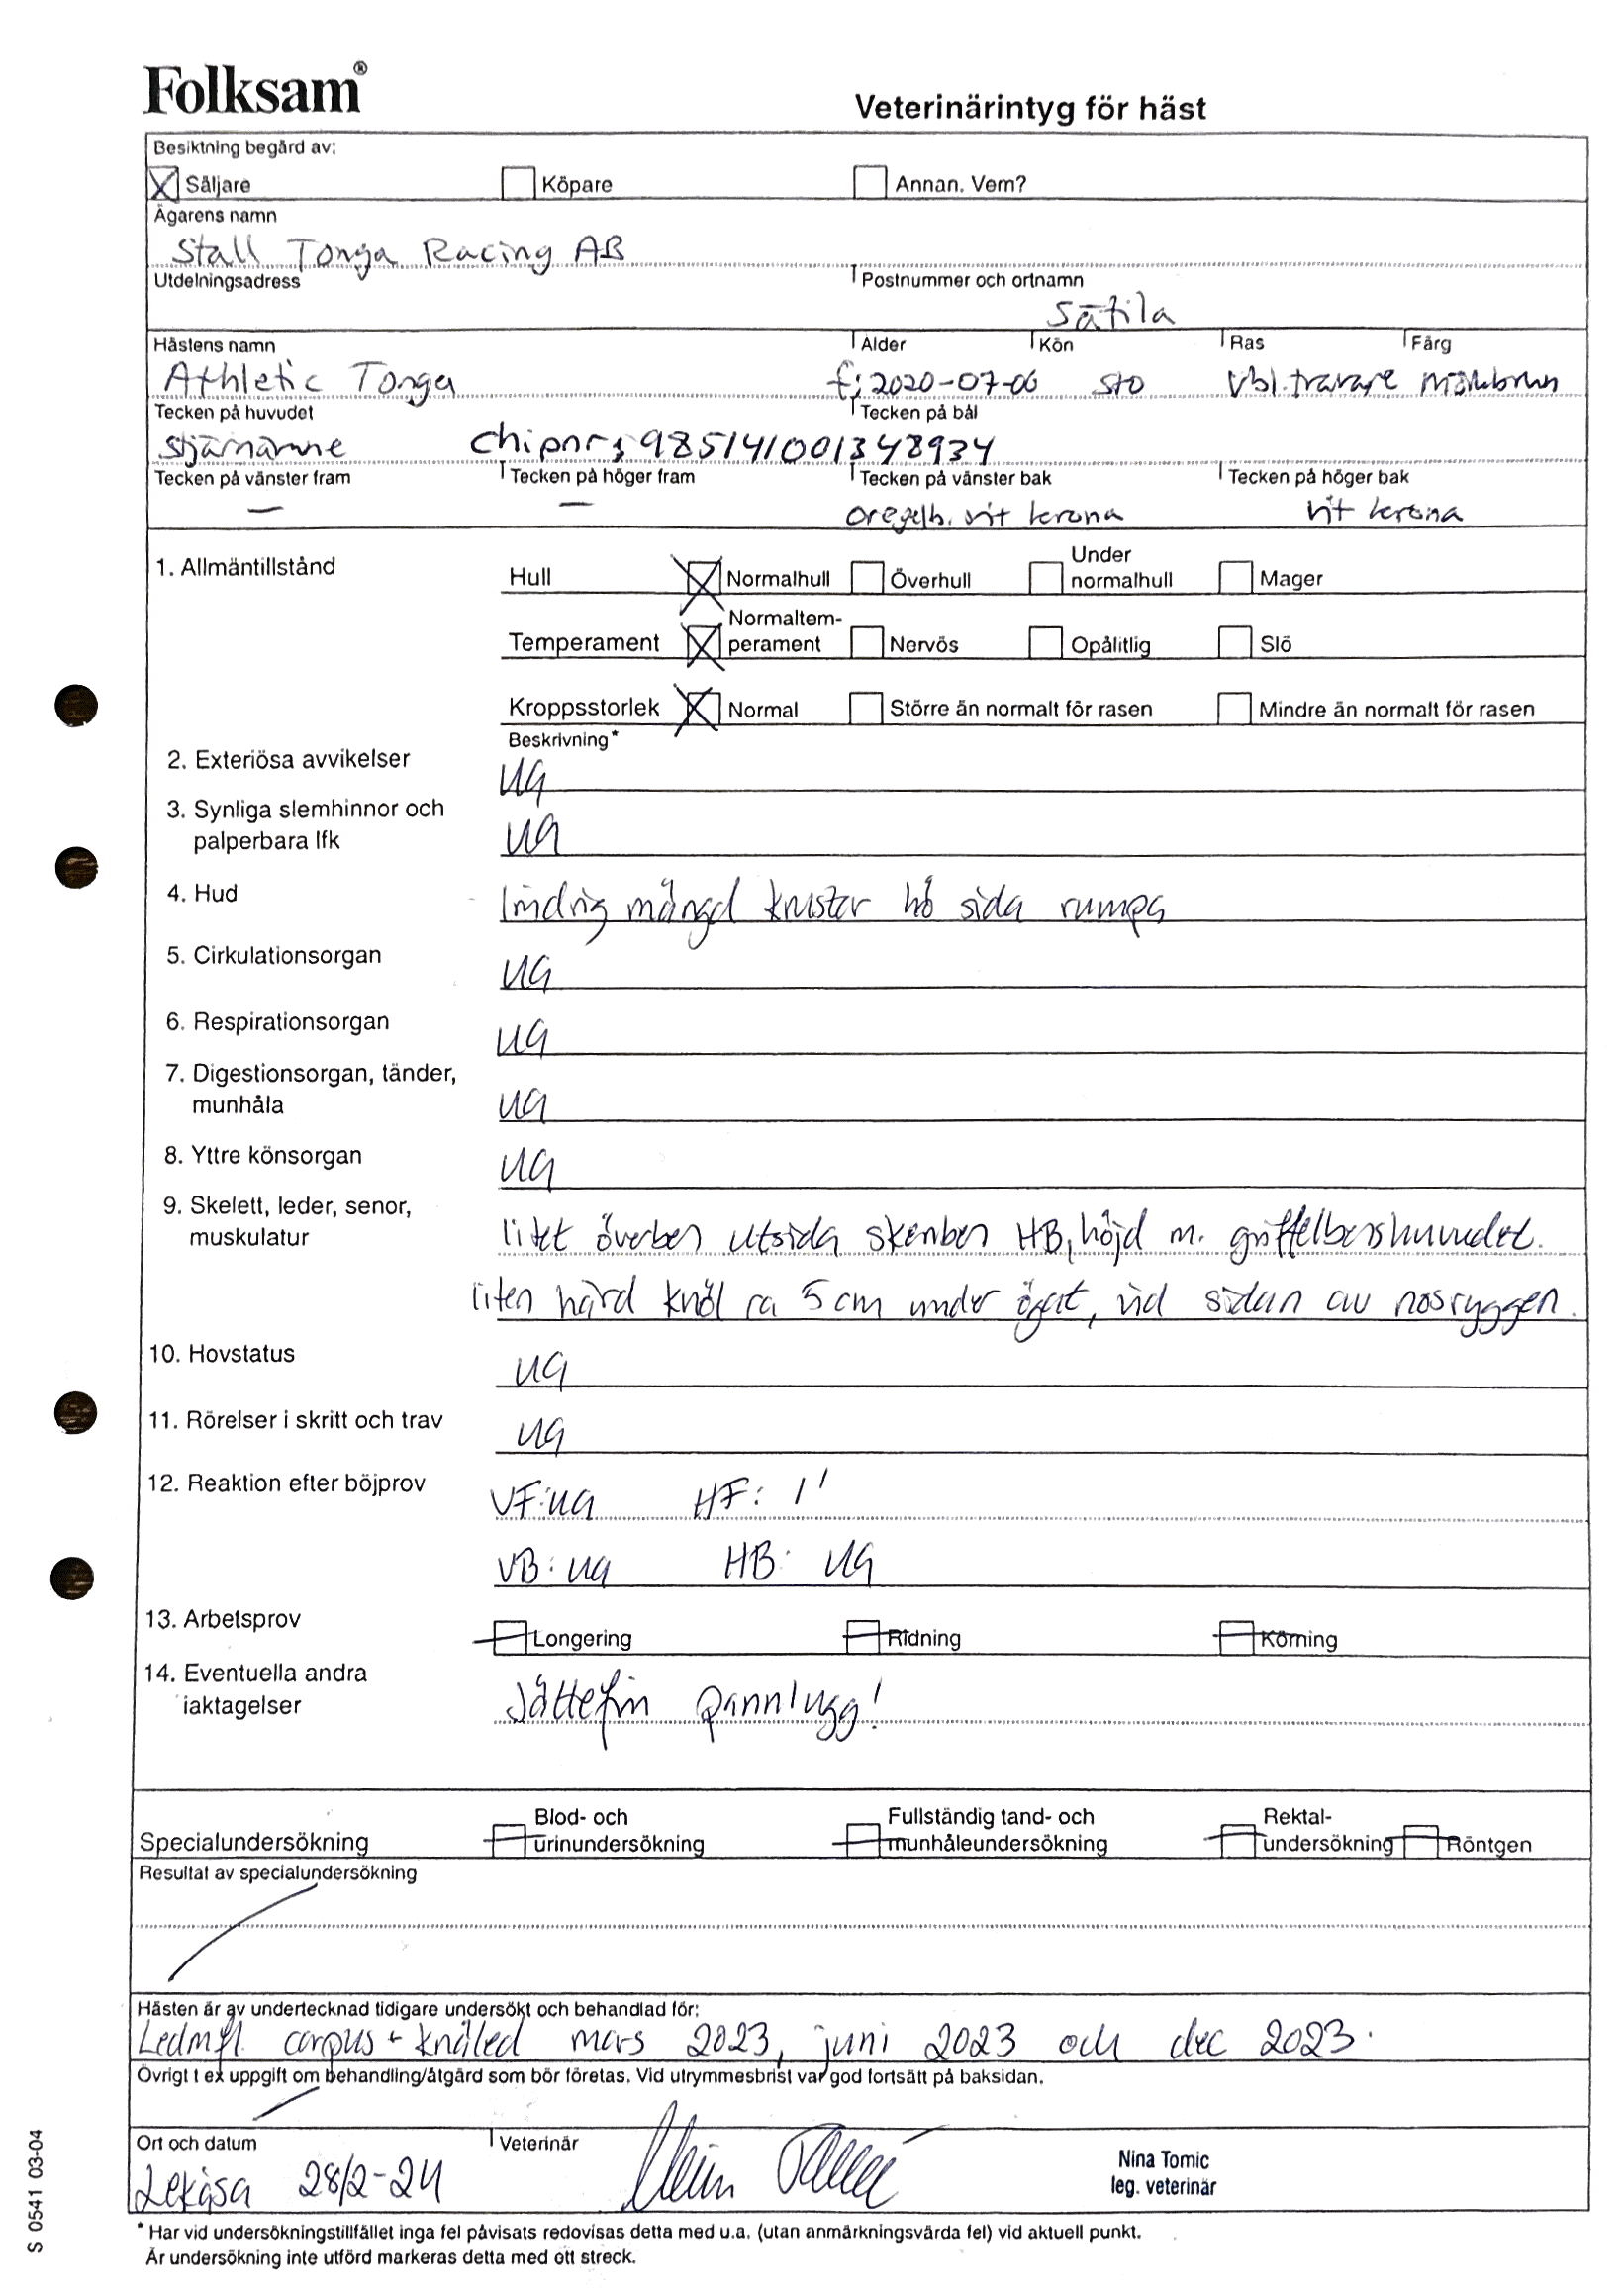 Folksam®
Veterinärintyg för häst
Besiktning begärd av:
Säljare Köpare Annan. Vem?
Ägarens namn
Stall Tonga Racing AB
Utdelningsadress Postnummer och ortnamn
Sätila
Hästens namn Ålder Kön Ras Färg
Athletic Tonga f: 2020-07-06 sto vbl. travare mörkbrun
Tecken på huvudet Tecken på bål
stjärnämne chipnr: 985141001348934
Tecken på vänster fram Tecken på höger fram Tecken på vänster bak Tecken på höger bak
— — oregelb. vit krona vit krona
1. Allmäntillstånd Hull Normalhull Överhull Under normalhull Mager
Temperament Normaltem-perament Nervös Opålitlig Slö
Kroppsstorlek Normal Större än normalt för rasen Mindre än normalt för rasen
Beskrivning*
2. Exteriösa avvikelser UA
3. Synliga slemhinnor och
palperbara lfk UA
4. Hud lindrig mängd krustor hö sida rumpa
5. Cirkulationsorgan UA
6. Respirationsorgan UA
7. Digestionsorgan, tänder,
munhåla UA
8. Yttre könsorgan UA
9. Skelett, leder, senor,
muskulatur litet överben utsida skenben HB, höjd m. griffelbenshuvudet.
liten hård knöl ca 5 cm under ögat, vid sidan av nosryggen.
10. Hovstatus UA
11. Rörelser i skritt och trav UA
12. Reaktion efter böjprov VF: UA HF: 1'
VB: UA HB: UA
13. Arbetsprov Longering Ridning Körning
14. Eventuella andra
iaktagelser Jättefin pannlugg!
Specialundersökning Blod- och urinundersökning Fullständig tand- och munhåleundersökning Rektal-undersökning Röntgen
Resultat av specialundersökning
Hästen är av undertecknad tidigare undersökt och behandlad för:
Ledinfl. carpus + knäled mars 2023, juni 2023 och dec 2023.
Övrigt t ex uppgift om behandling/åtgärd som bör företas. Vid utrymmesbrist var god fortsätt på baksidan.
Ort och datum Veterinär
Lekåsa 28/2-24
Nina Tomic
leg. veterinär
* Har vid undersökningstillfället inga fel påvisats redovisas detta med u.a. (utan anmärkningsvärda fel) vid aktuell punkt.
Är undersökning inte utförd markeras detta med ett streck.
S 0541 03-04